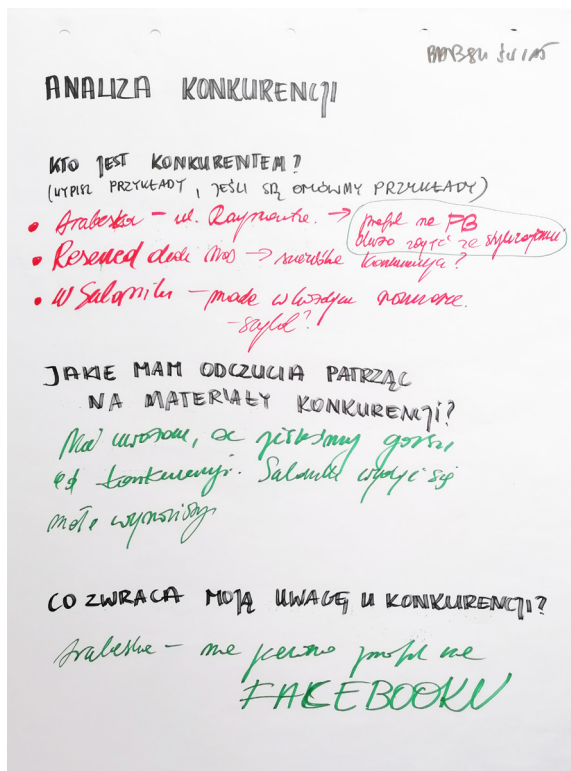 BABSKI ŚWIAT
ANALIZA KONKURENCJI
KTO JEST KONKURENTEM?
(WYPISZ PRZYKŁADY, JEŚLI SĄ OMÓWMY PRZYKŁADY)
• Arabeska – ul. Reymonta. → profil na FB
dużo zdjęć ze
• Reserved dla → konkurencja?
• W Saloniku – moda w każdym rozmiarze.
– szyld?
JAKIE MAM ODCZUCIA PATRZĄC
NA MATERIAŁY KONKURENCJI?
Nie uważam, że jesteśmy gorsi
od konkurencji. Salonik wydaje się
mało wyrazisty
CO ZWRACA MOJĄ UWAGĘ U KONKURENCJI?
Arabeska – na pewno profil na
FACEBOOKU